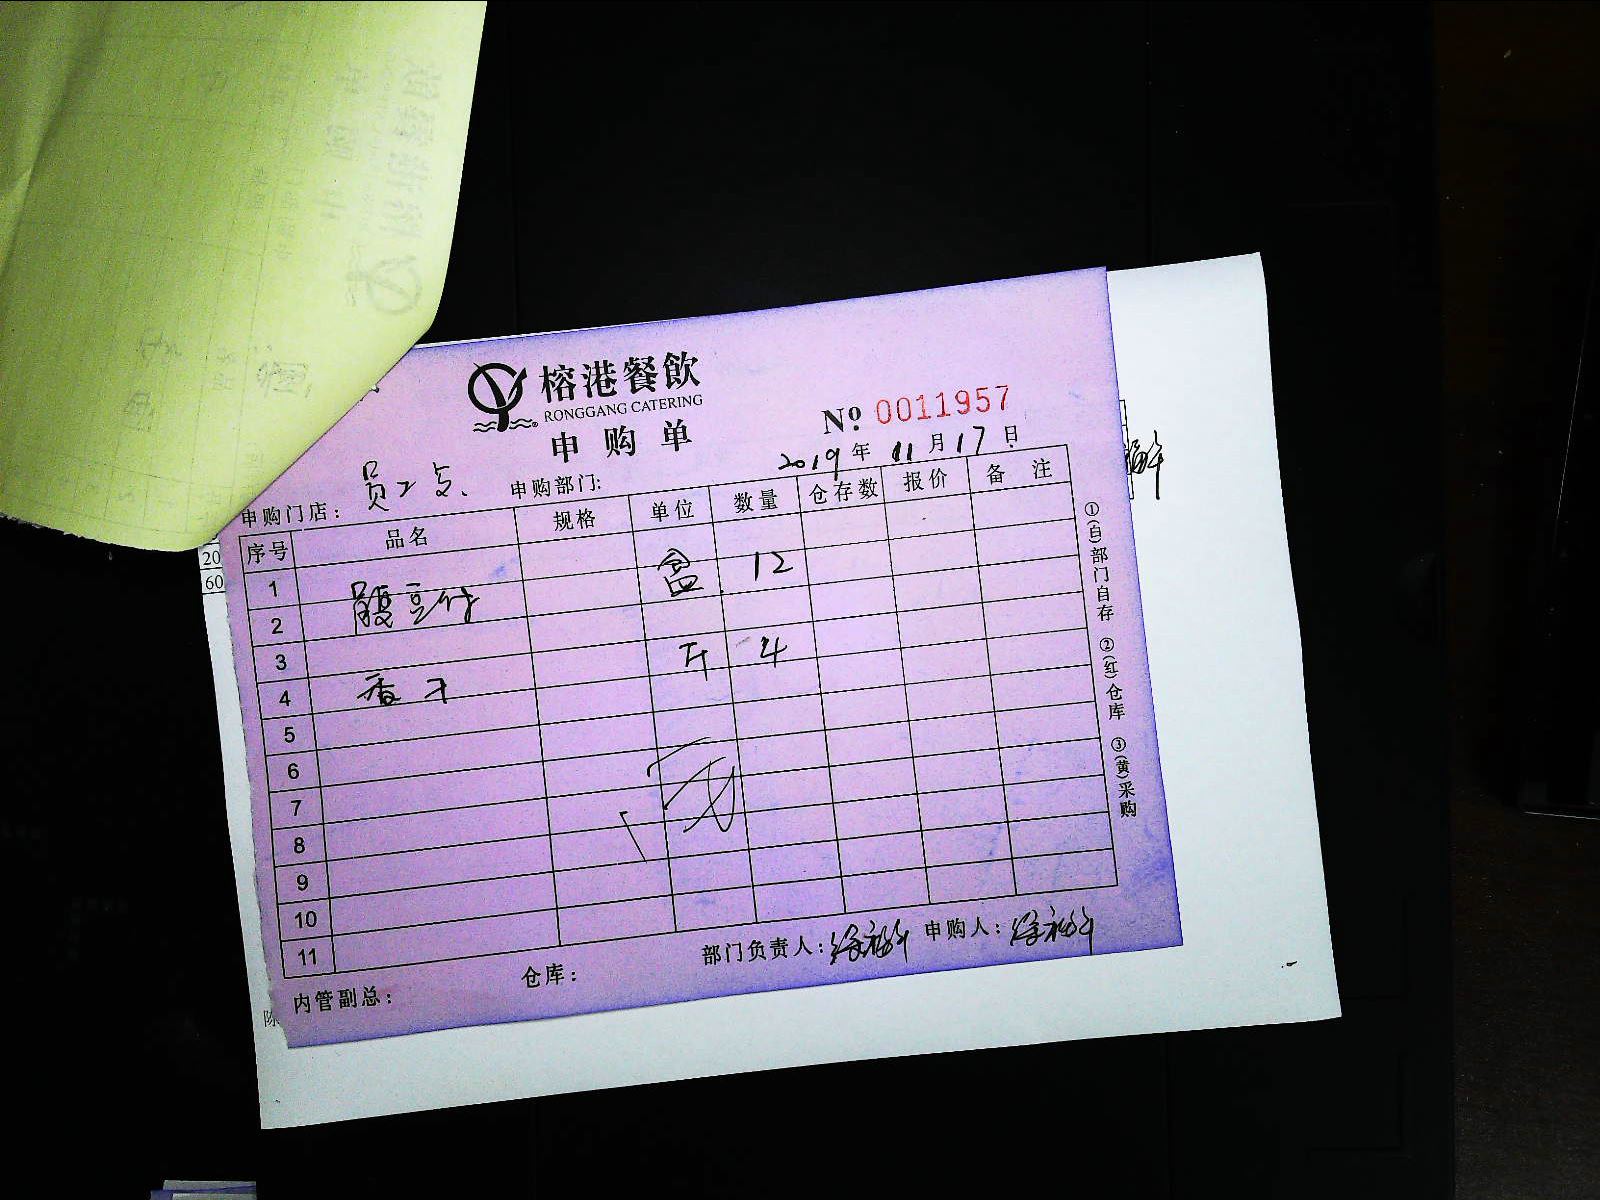 榕港餐飲
RONGGANG CATERING
申购单
№ 0011957
2019年11月17日
申购门店： 员工 申购部门:
序号 品名 规格 单位 数量 仓存数 报价 备注
1 盒 12
2 豆付
3 斤 4
4 香才
5
6
7
8
9
10
11
内管副总： 仓库： 部门负责人： 申购人：
①(白)部门自存 ②(红)仓库 ③(黄)采购
20
60
陈